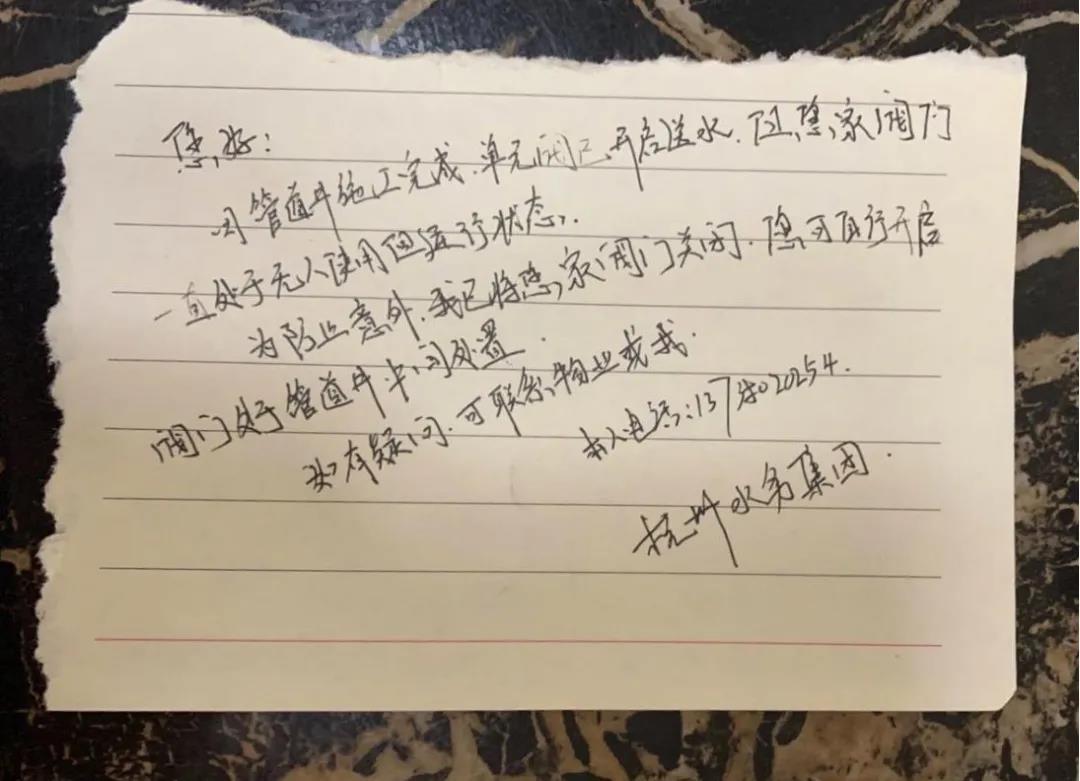 您好:
因管道井施工完成.单元阀已开启送水.因您家阀门
一直处于无人使用且运行状态.
为防止意外.我已将您家阀门关闭.您可自行开启
阀门处于管道井中间处置.
如有疑问.可联系物业或我.
本人电话:137
杭州水务集团.